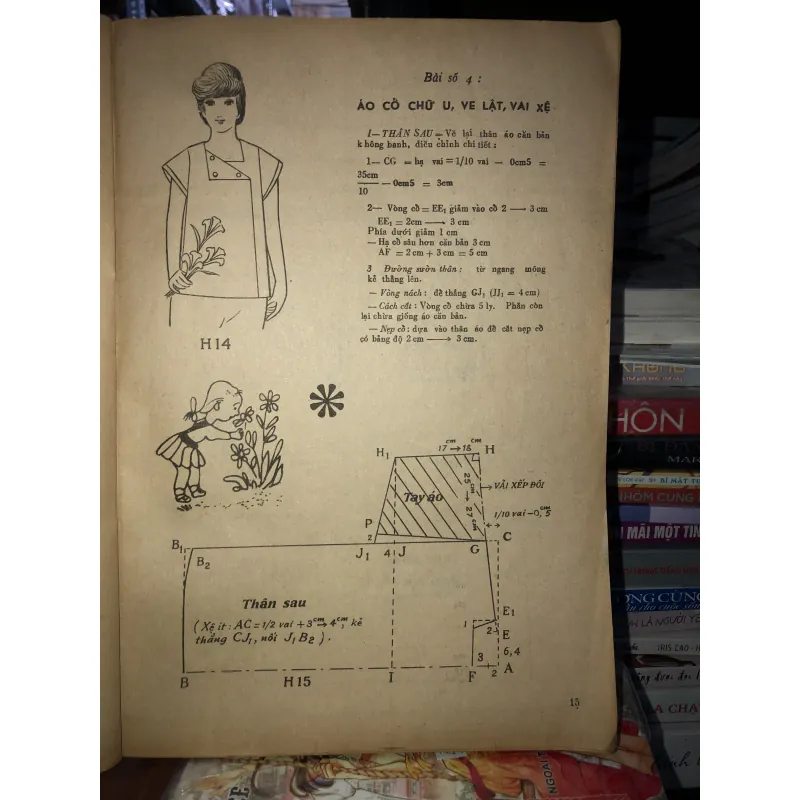 Bài số 4 :
ÁO CỔ CHỮ U, VE LẬT, VAI XỆ
1— THÂN SAU — Vẽ lại thân áo căn bản
không banh, điều chỉnh chi tiết :
1— CG = hạ vai = 1/10 vai — 0cm5 =
35cm
10
— 0cm5 = 3cm
2— Vòng cổ = EE₁ giảm vào cổ 2 → 3 cm
EE₁ = 2cm → 3 cm
Phía dưới giảm 1 cm
— Hạ cổ sâu hơn căn bản 3 cm
AF = 2 cm + 3 cm = 5 cm
3 Đường sườn thân : từ ngang mông
kẻ thẳng lên.
— Vòng nách : để thẳng GJ₁ (JJ₁ = 4 cm)
— Cách cắt : Vòng cổ chừa 5 ly. Phần còn
lại chừa giống áo căn bản.
— Nẹp cổ : dựa vào thân áo để cắt nẹp cổ
có bảng độ 2 cm → 3 cm.
H14
17 cm → 18 cm
H₁
H
Tay áo
25 cm → 27 cm
VẢI XẾP ĐÔI
1/10 vai – 0,5
P
2
C
B₁
B₂
J₁
4
J
G
Thân sau
(Xệ ít : AC = 1/2 vai + 3cm → 4cm, kẻ
thẳng CJ₁, nối J₁B₂).
E₁
1
2
E
3
6,4
B
H15
I
F
2
A
15
KHÔNG
HÔN
BÍ MẬT
NHÓM CUNG
MÃI MỘT TÌN
IRIS CAO